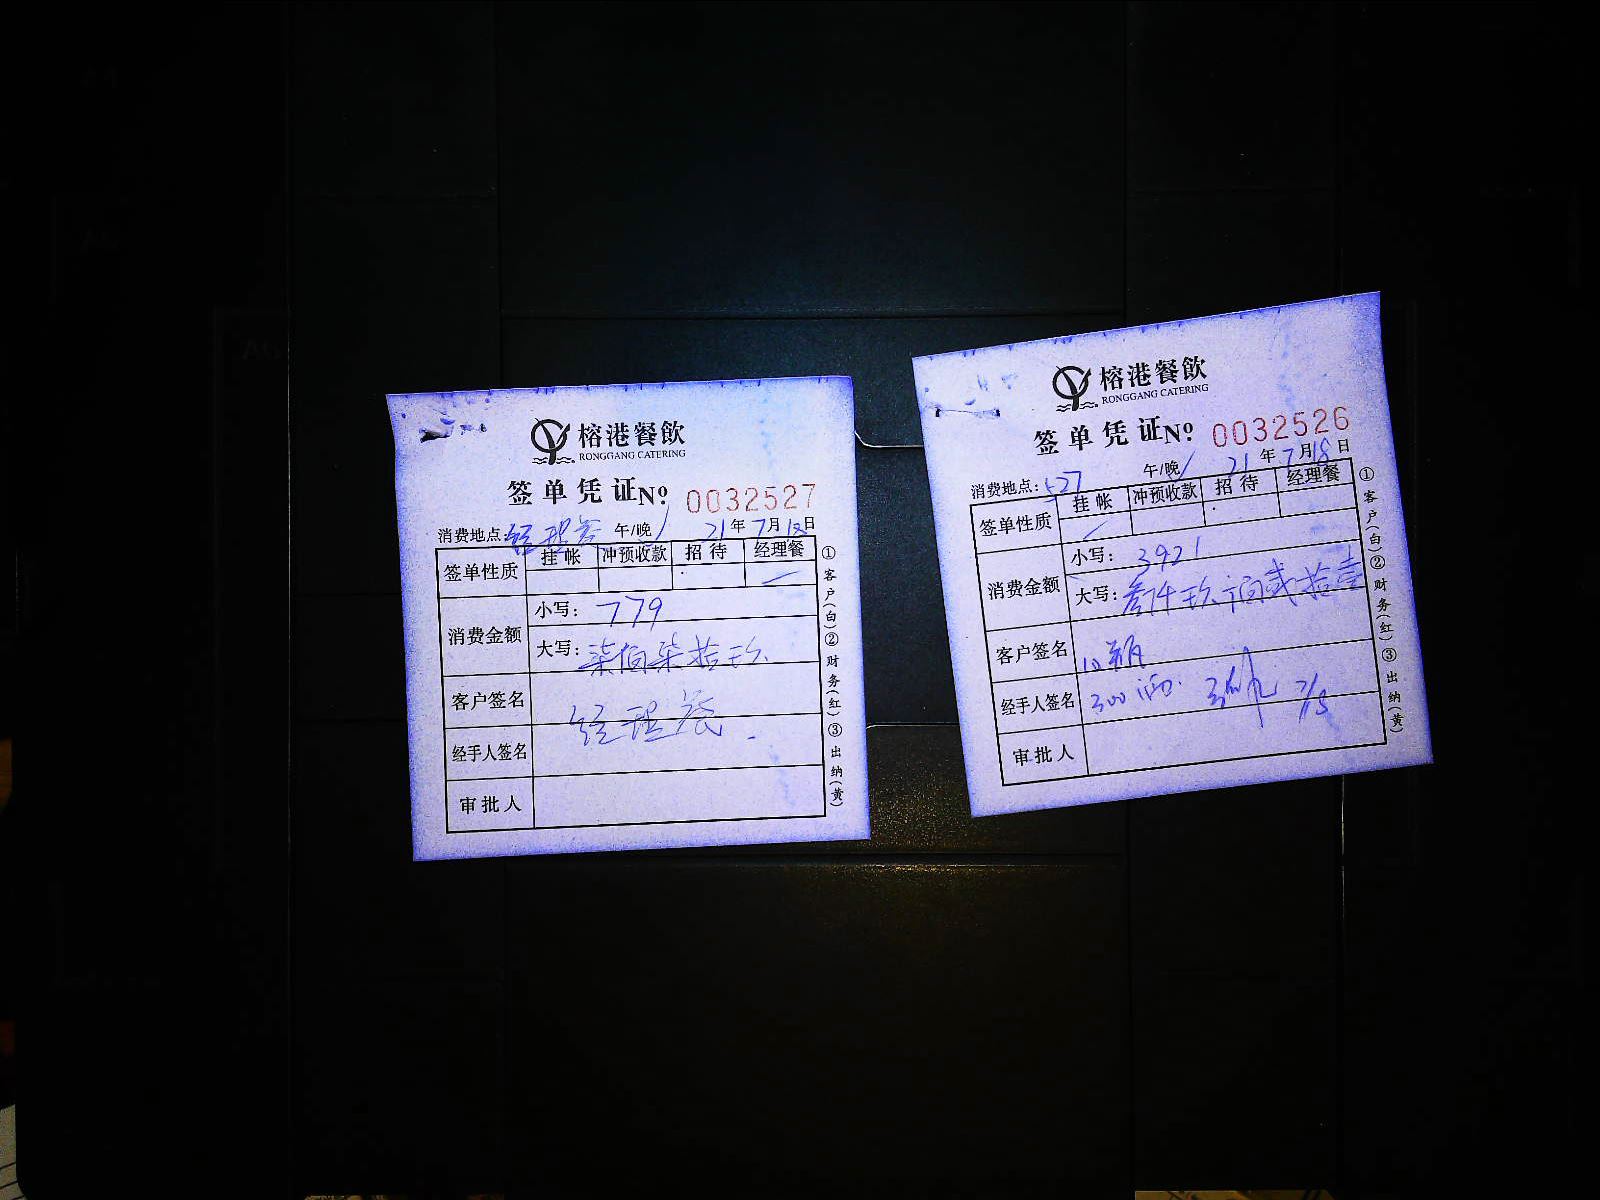 榕港餐飲
RONGGANG CATERING
签单凭证№ 0032527
消费地点: 经理餐 午/晚 21年7月18日
签单性质 挂帐 冲预收款 招待 经理餐
消费金额 小写: 779
大写: 柒佰柒拾玖
客户签名 经理餐
经手人签名
审批人
①客户(白)②财务(红)③出纳(黄)
榕港餐飲
RONGGANG CATERING
签单凭证№ 0032526
消费地点: 527 午/晚 21年7月18日
签单性质 挂帐 冲预收款 招待 经理餐
消费金额 小写: 3921
大写: 叁仟玖佰贰拾壹
客户签名
经手人签名 300 7/18
审批人
①客户(白)②财务(红)③出纳(黄)